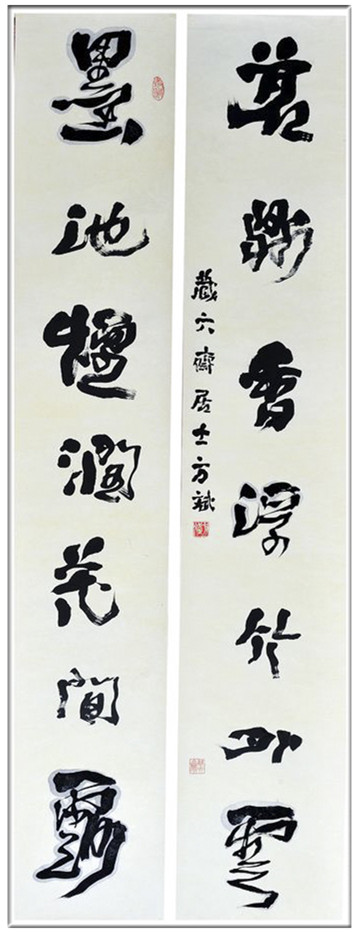 茗鼎香浮竹外雲
藏六齋居士方斌
墨池煙潤花間露